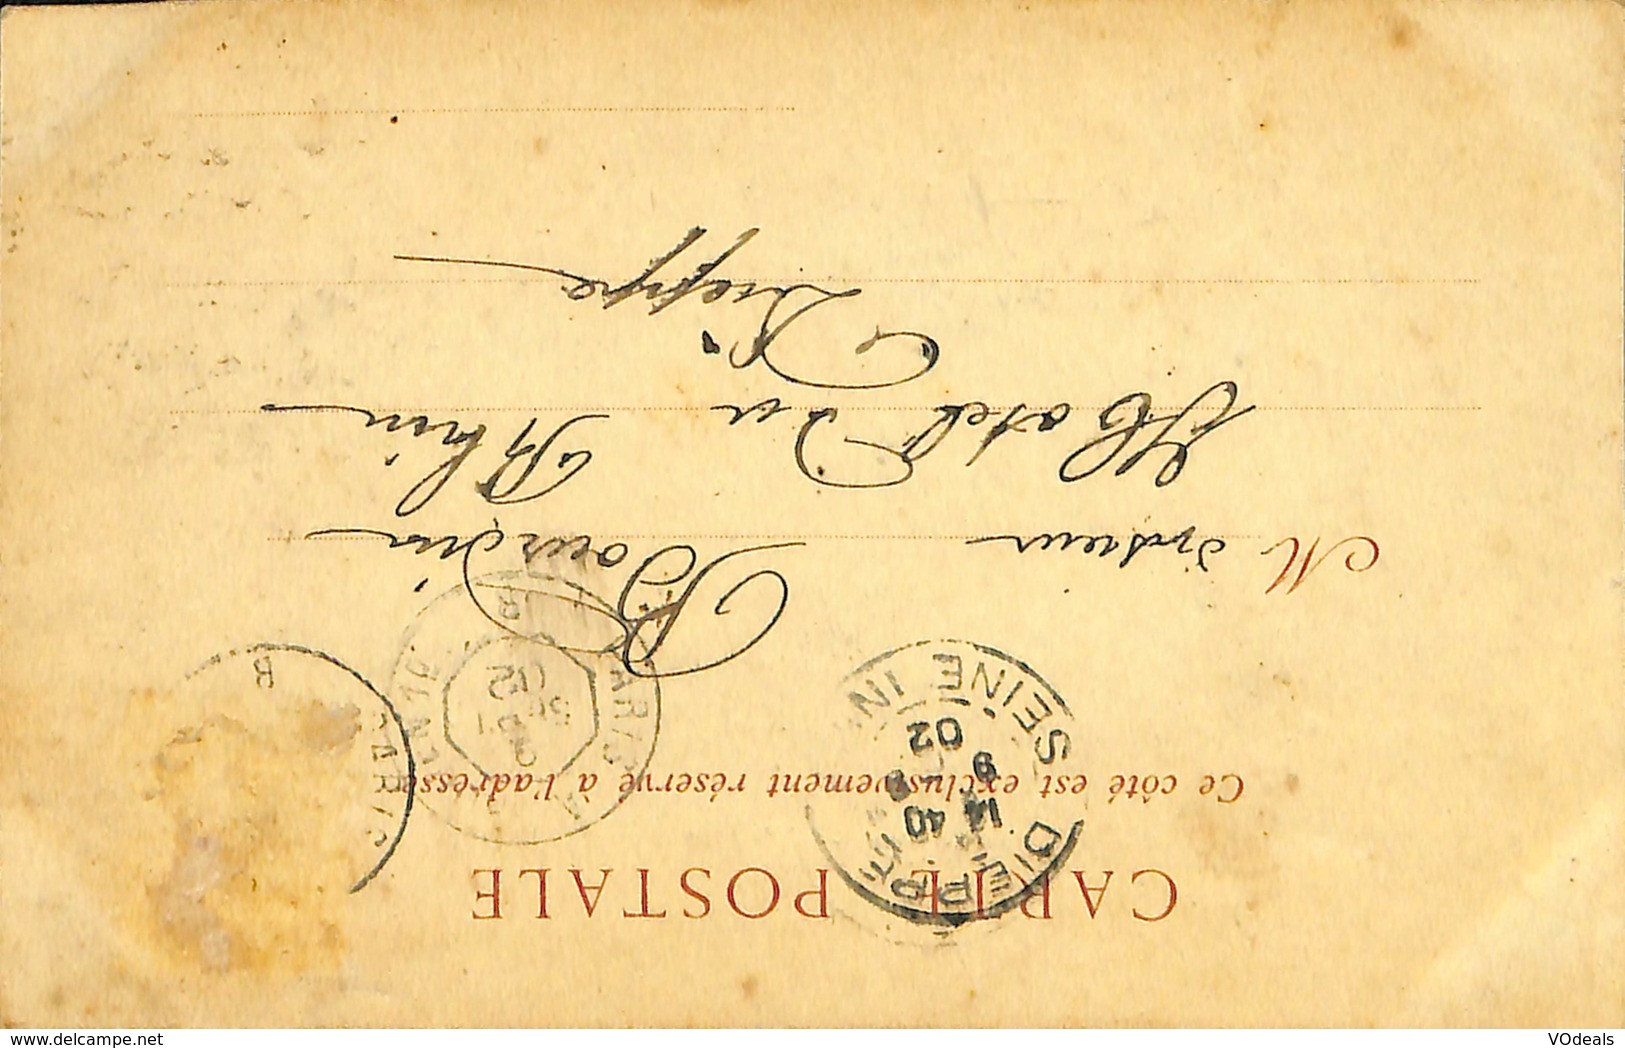 CARTE POSTALE
Ce côté est exclusivement réservé à l'adresse
DIEPPE
14 40
9
02
SEINE INF
PARIS
02
PARIS
B
Monsieur Bourdin
Hotel Du Rhin
Dieppe
VOdeals
delcampe.net